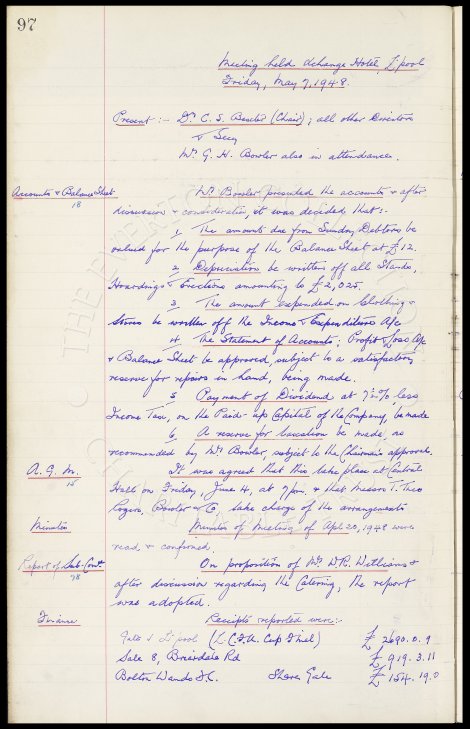 97
Meeting held Exchange Hotel, L'pool
Friday, May 7, 1948.
Present :- Dr. C. S. Baxter (Chair); all other Directors
& Secy
Mr. G. H. Bowler also in attendance.
Accounts & Balance Sheet
18
Mr. Bowler presented the accounts & after
discussion & consideration, it was decided that:-
1. The amounts due from Sunday Debtors be
valued for the purpose of the Balance Sheet at £12.
2. Depreciation be written off all Stands,
Hoardings & Erections amounting to £2,025.
3. The amount expended on Clothing &
Stores be written off the Income & Expenditure A/c
4. The Statement of Accounts; Profit & Loss A/c
& Balance Sheet be approved, subject to a satisfactory
reserve for repairs in hand, being made.
5. Payment of Dividend at 7½% less
Income Tax, on the Paid-up Capital of the Company, be made
6. A reserve for taxation be made, as
recommended by Mr. Bowler, subject to the Chairman's approval.
A. G. M.
15
It was agreed that this take place at Central
Hall on Friday, June 4, at 7 pm, & that Messrs T. Theo
Rogers, Bowler & Co, take charge of the arrangements
Minutes
Minutes of Meeting of Apl 20, 1948 were
read, & confirmed.
Report of Sub-Comt
78
On proposition of Mr. W. R. Williams &
after discussion regarding the Catering, the report
was adopted.
Finance
Receipts reported were:-
Gate v L'pool (L.C.F.A. Cup Final) £ 2690. 0. 9
Sale 8, Briardale Rd £ 919. 3. 11
Bolton Wands F.C. Share Gate £ 154. 19. 0